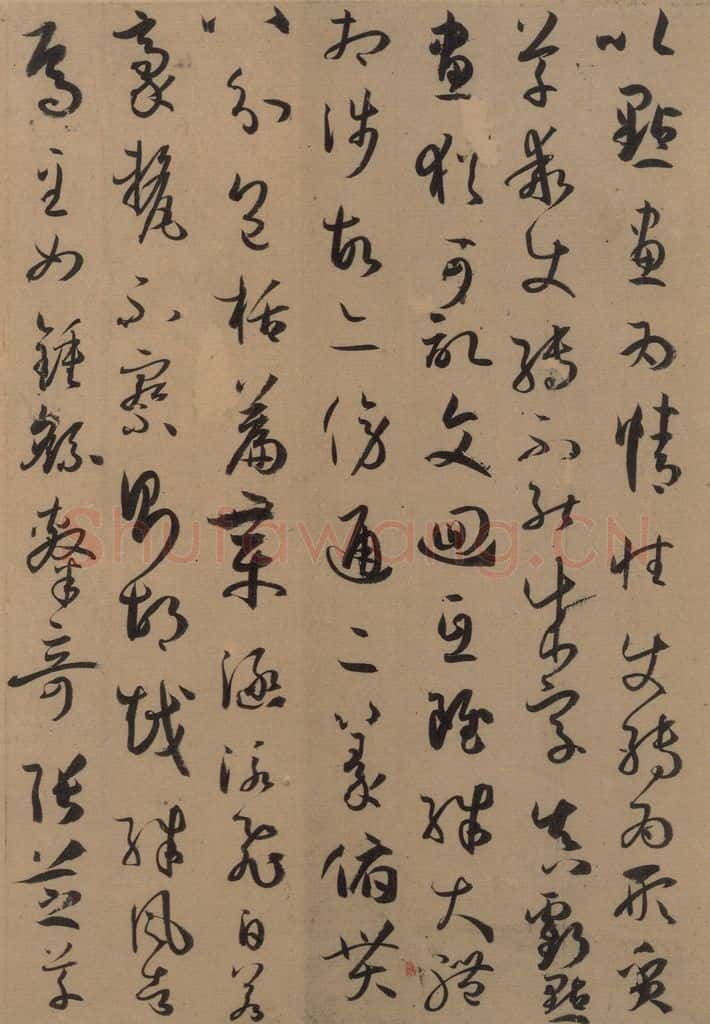 以點畫為情性使轉為形質
草乖使轉不能成字真虧點
畫猶可記文迴互雖殊大體
相涉故亦傍通二篆俯貫
八分包括篇章涵泳飛白若
豪氂不察則胡越殊風者
焉至如鍾繇隸奇張芝草
Shufawang.CN